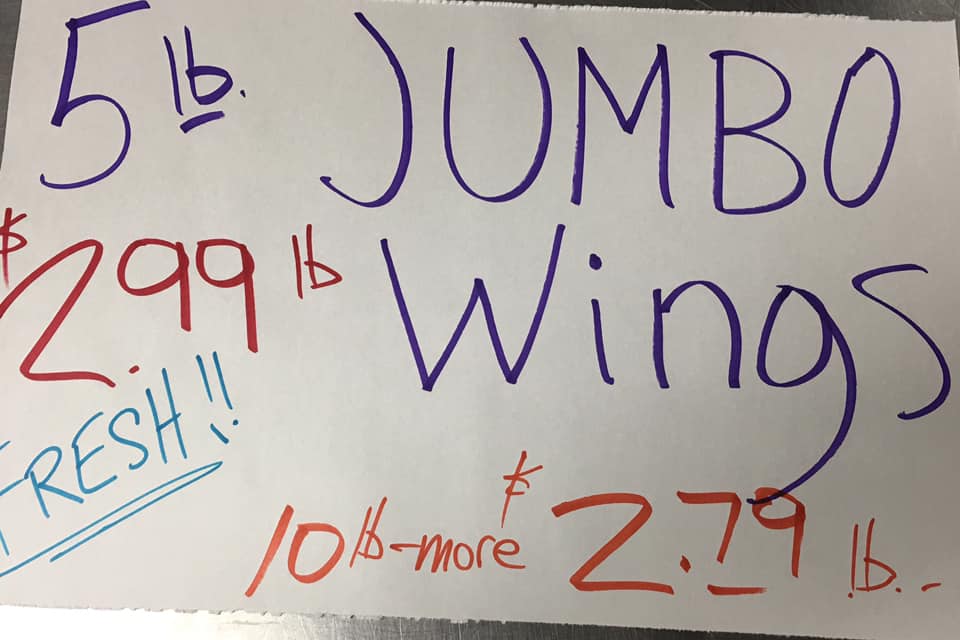 5 lb. JUMBO
Wings
$2.99 lb
FRESH!!
10 lb-more $2.79 lb.-